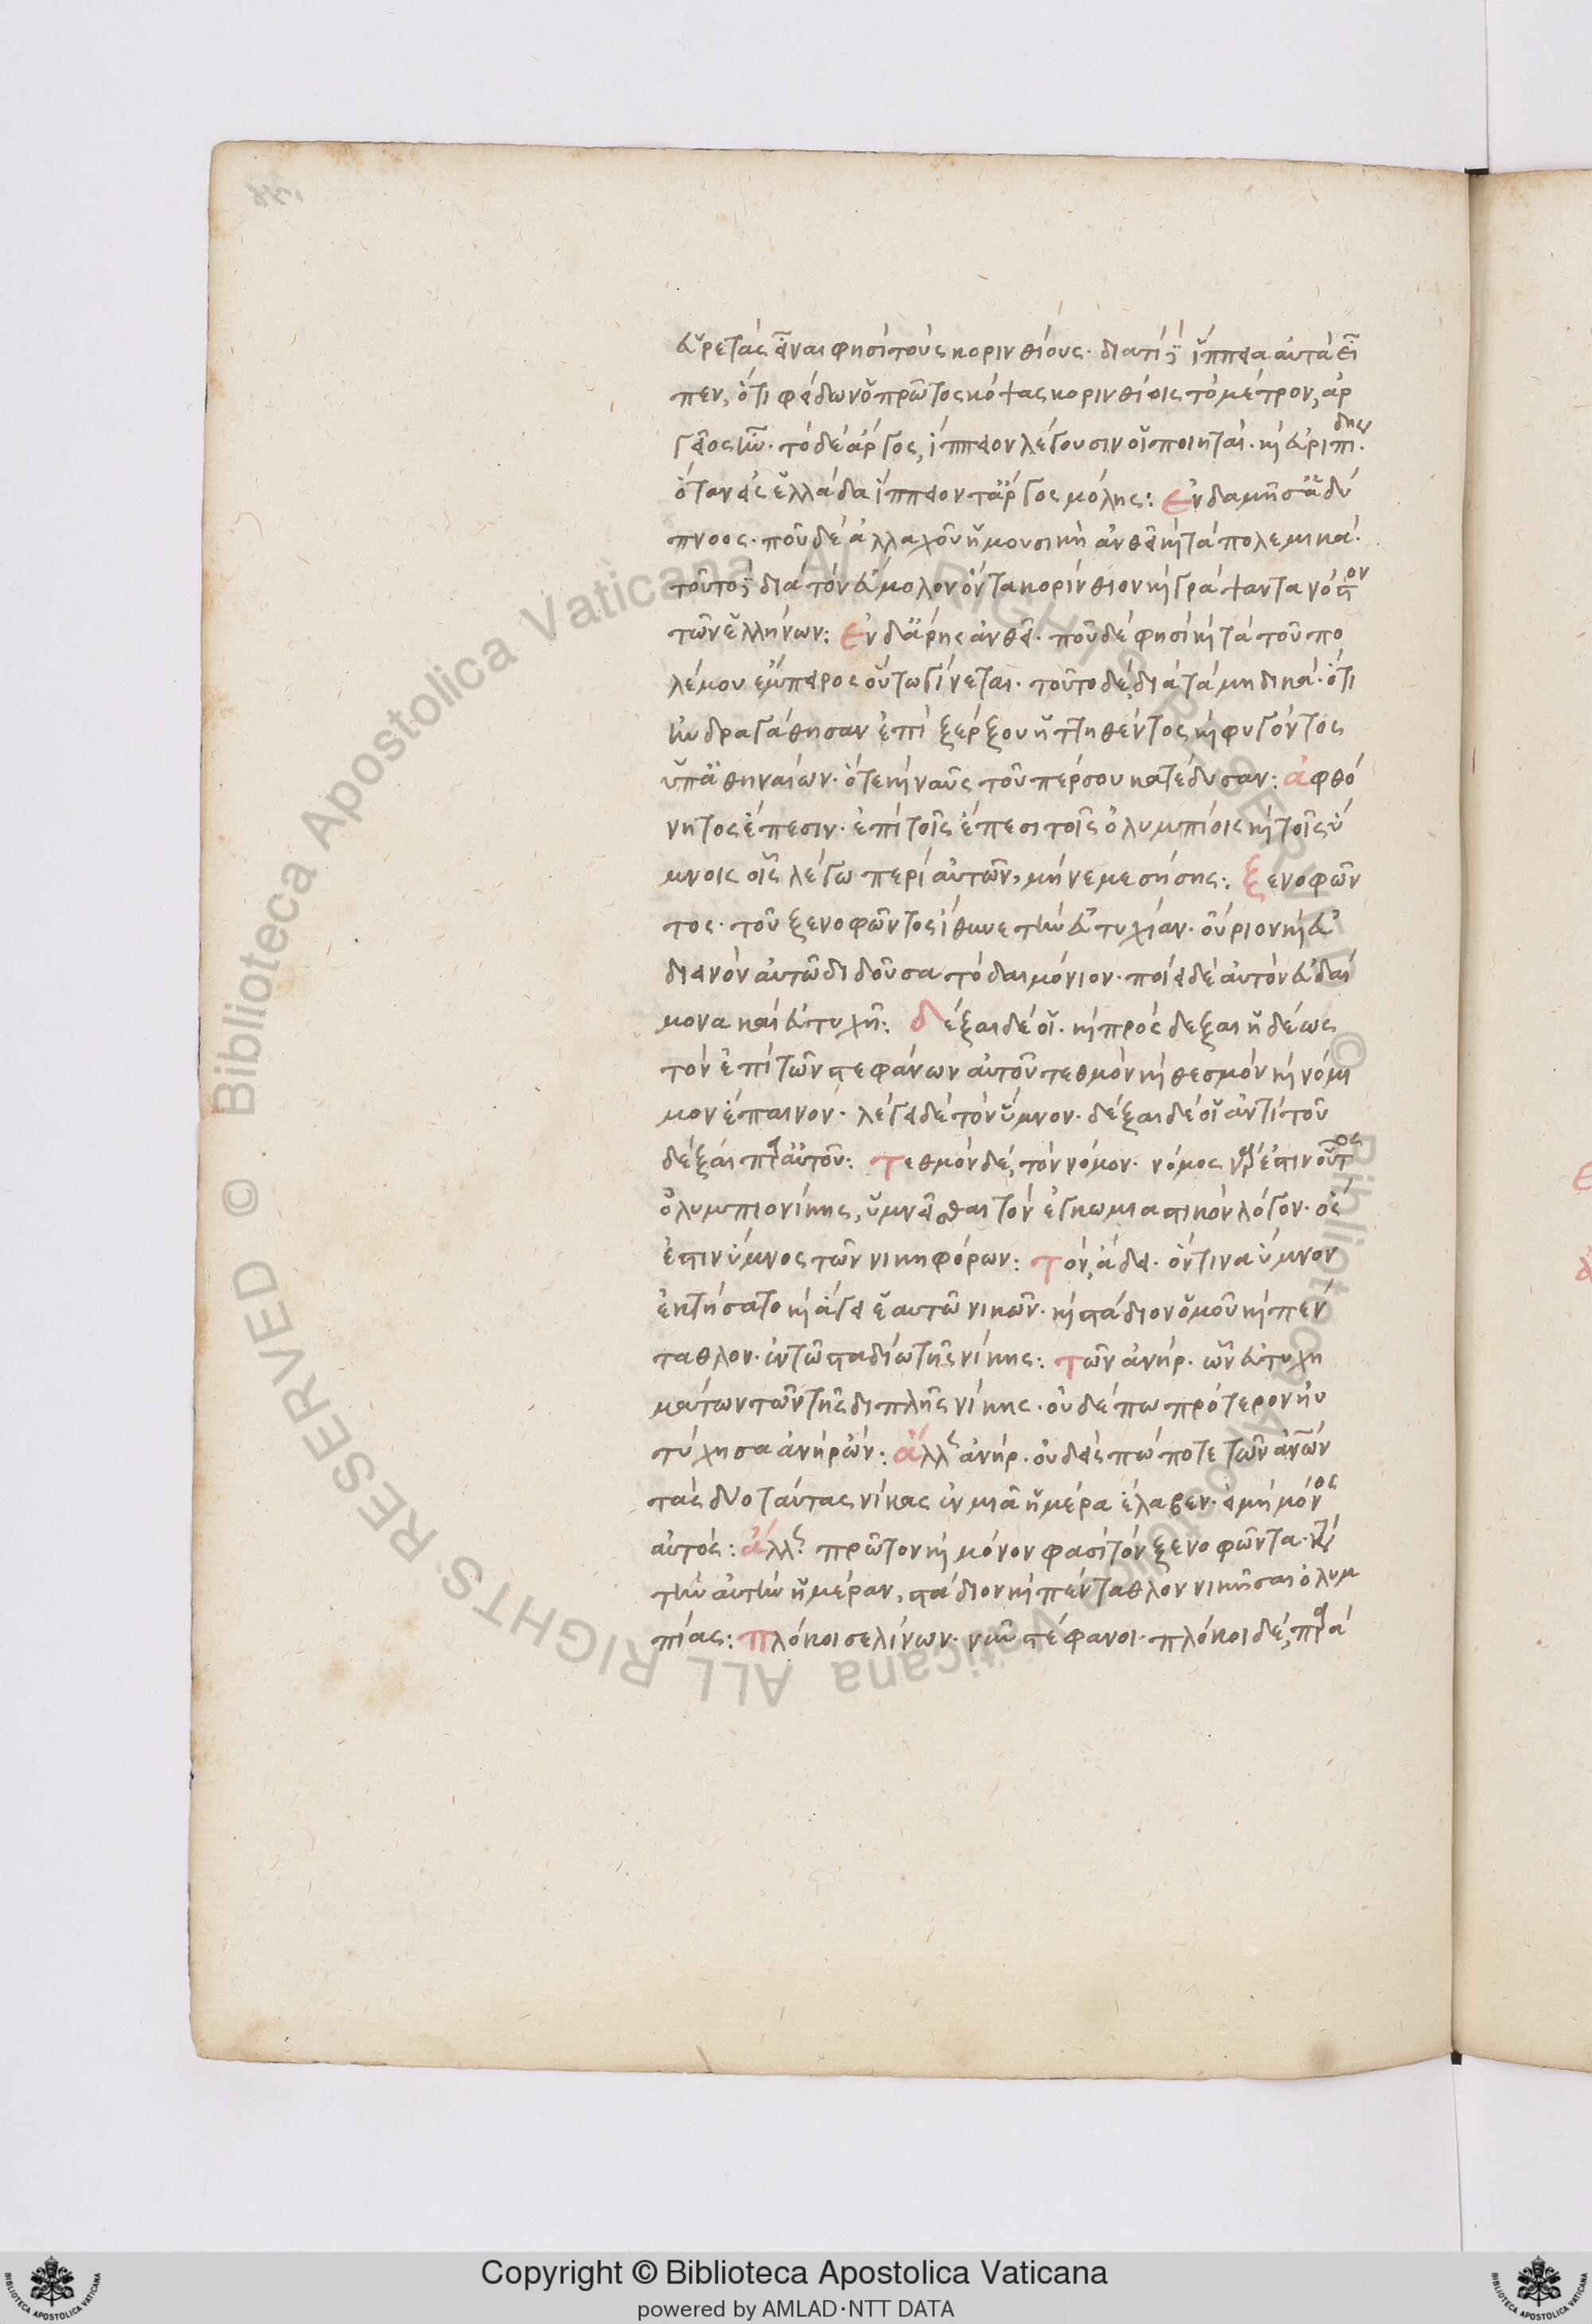 εὑρετὰς εἶναι φησὶ τοὺς κορινθίους· διατί δὲ ἵππεια αὐτὰ εἶ
πεν, ὅτι φείδων ὁ πρῶτος κόψας κορινθίοις τὸ μέτρον, ἀρ
γεῖος ἦν· τὸ δὲ ἄργος, ἵππειον λέγουσιν οἱ ποιηταί· καὶ εὐριπίδης
ὅταν εἰς ἑλλάδα ἵππειον τ' ἄργος μόλης: ἐν δὲ μοῖσ' ἁδύ
πνοος· ποῦ δὲ ἀλλαχοῦ ἡ μουσικὴ ἀνθεῖ καὶ τὰ πολεμικά·
τοῦτο δὲ διὰ τὸν εὔμολον ὄντα κορίνθιον καὶ γράψαντα νόστον
τῶν ἑλλήνων: ἐν δ' ἄρης ἀνθεῖ· ποῦ δέ φησι καὶ τὰ τοῦ πο
λέμου ἔμπειρος οὕτω γίνεται· τοῦτο δὲ, διὰ τὰ μηδικά· ὅτι
ἠνδραγάθησαν ἐπὶ ξέρξου ἡττηθέντος καὶ φυγόντος
ὑπ' ἀθηναίων· ὅτε καὶ ναῦς τοῦ πέρσου κατέδυσαν: ἀφθό
νητος ἔπεσιν· ἐπὶ τοῖς ἔπεσι τοῖς ὀλυμπίοις καὶ τοῖς ὕ
μνοις οἷς λέγω περὶ αὐτῶν, μὴ νεμεσήσης: ξενοφῶν
τος· τοῦ ξενοφῶντος ἴθυνε τὴν εὐτυχίαν· οὔριον καὶ εὐ
διεινὸν αὐτῶ διδοῦσα τὸ δαιμόνιον· ποίει δὲ αὐτὸν εὐδαί
μονα καὶ εὐτυχῆ: δέξαι δέ οἱ· καὶ πρόςδεξαι ἡδέως
τὸν ἐπὶ τῶν στεφάνων αὐτοῦ τεθμὸν καὶ θεσμὸν καὶ νόμι
μον ἔπαινον· λέγει δὲ τὸν ὕμνον· δέξαι δέ οἱ ἀντὶ τοῦ
δέξαι παρ' αὐτοῦ: τεθμὸν δὲ, τὸν νόμον· νόμος γάρ ἐστιν οὗτος
ὀλυμπιονίκης, ὑμνεῖσθαι τὸν ἐγκωμιαστικὸν λόγον· ὅς
ἐστιν ὕμνος τῶν νικηφόρων: τὸν, ἄγει· ὅντινα ὕμνον
ἐκτήσατο καὶ ἄγει ἑαυτῶ νικῶν· καὶ στάδιον ὁμοῦ καὶ πέν
ταθλον· ἐν τῶ σταδίω τῆς νίκης: τῶν ἀνήρ· ὧν εὐτυχη
μάτων τῶν τῆς διπλῆς νίκης· οὐδέπω πρότερον ηὐ
τύχησα ἀνὴρ ὤν: ἀλλ' ἀνήρ· οὐδεὶς πώποτε τῶν ἀνῶν
τὰς δύο ταύτας νίκας ἐν μιᾶ ἡμέρα ἔλαβεν· εἰ μὴ μόνος
αὐτός: ἄλλως πρῶτον καὶ μόνον φασὶ τὸν ξενοφῶντα· κατὰ
τὴν αὐτὴν ἡμέραν, στάδιον καὶ πένταθλον νικῆσαι ὀλυμ
πίας: πλόκοι σελίνων· νῦν στέφανοι· πλόκοι δὲ, παρά